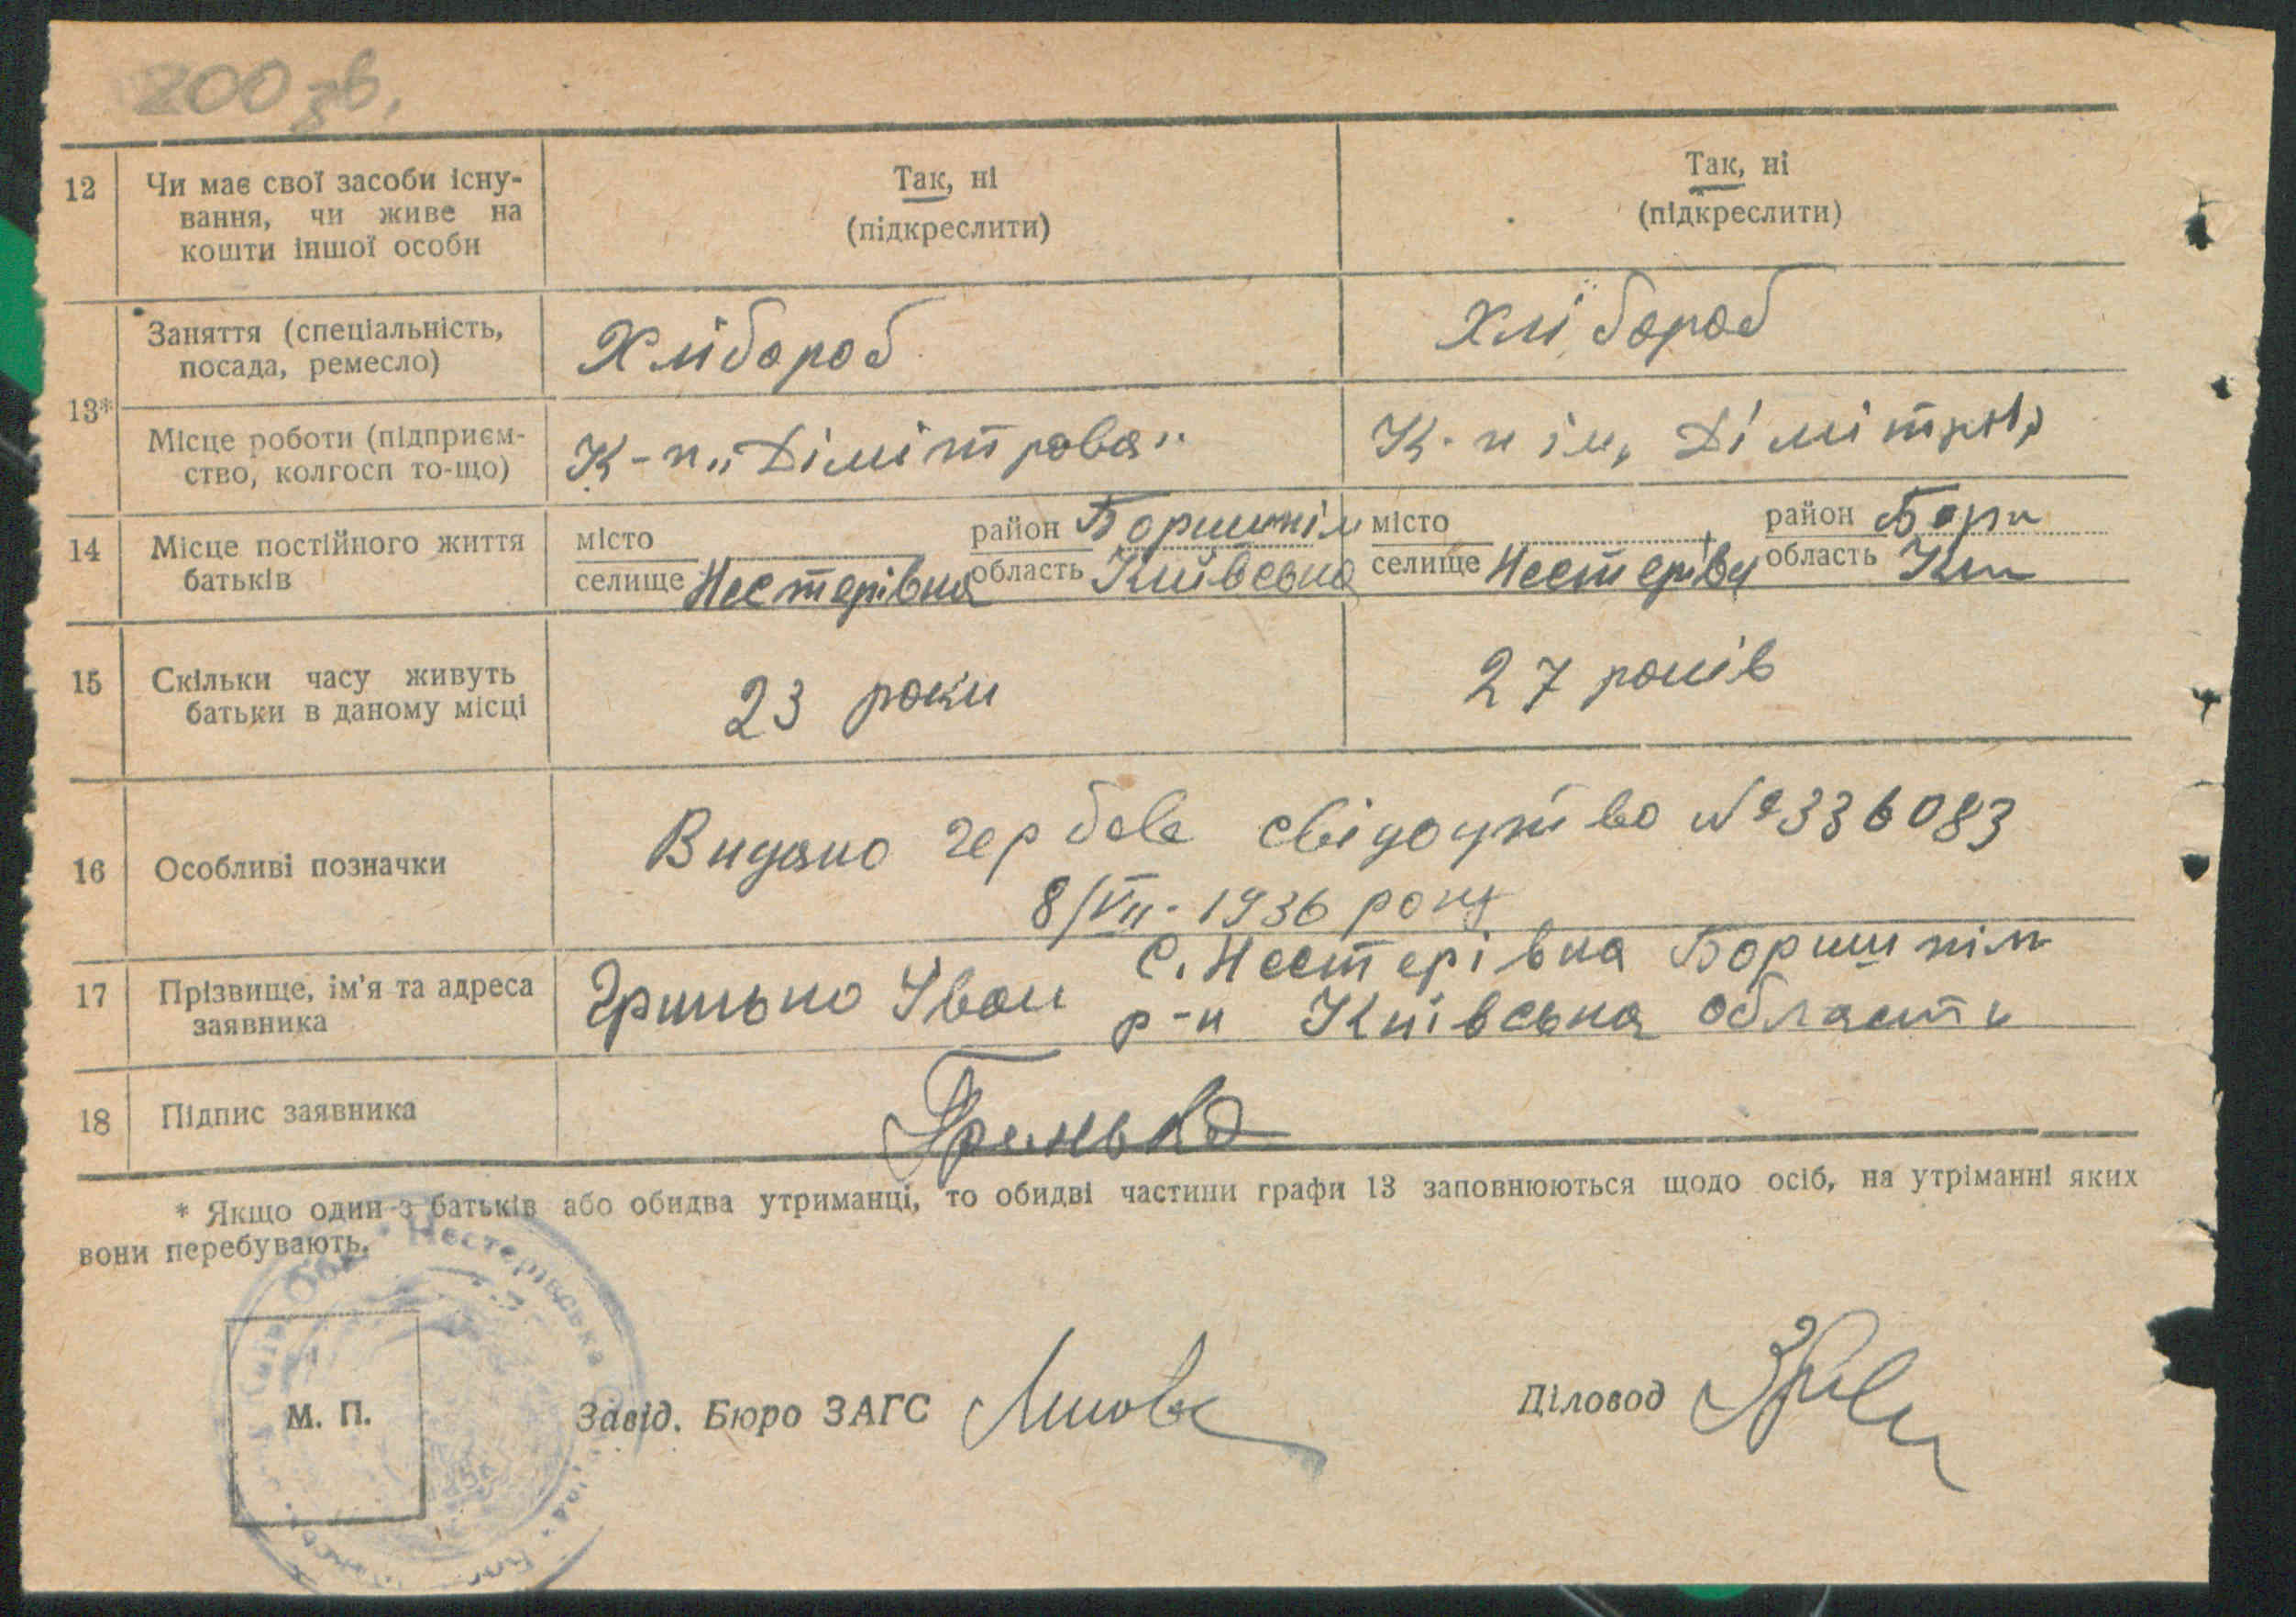 200 зв.
12 Чи має свої засоби існу-
вання, чи живе на
кошти іншої особи
Так, ні
(підкреслити)
Так, ні
(підкреслити)
13*
Заняття (спеціальність,
посада, ремесло)
Хлібороб
Хлібороб
Місце роботи (підприєм-
ство, колгосп то-що)
К-п „Дімітрова"
К-п ім,
14 Місце постійного життя
батьків
місто
район Боришпіл
селище Нестерівка область Київська
місто
район Бори
селище Нестерівка область
15 Скільки часу живуть
батьки в даному місці
23 роки
27 років
16 Особливі позначки
Видано гербове свідоцтво № 336083
8/VII-1936 року
17 Прізвище, ім'я та адреса
заявника
Гринько Іван с. Нестерівка Боришпіл
р-н Київська область
18 Підпис заявника
Гринько
* Якщо один з батьків або обидва утриманці, то обидві частини графи 13 заповнюються щодо осіб, на утріманні яких
вони перебувають.
Нестерівська
М. П.
Завід. Бюро ЗАГС
Діловод